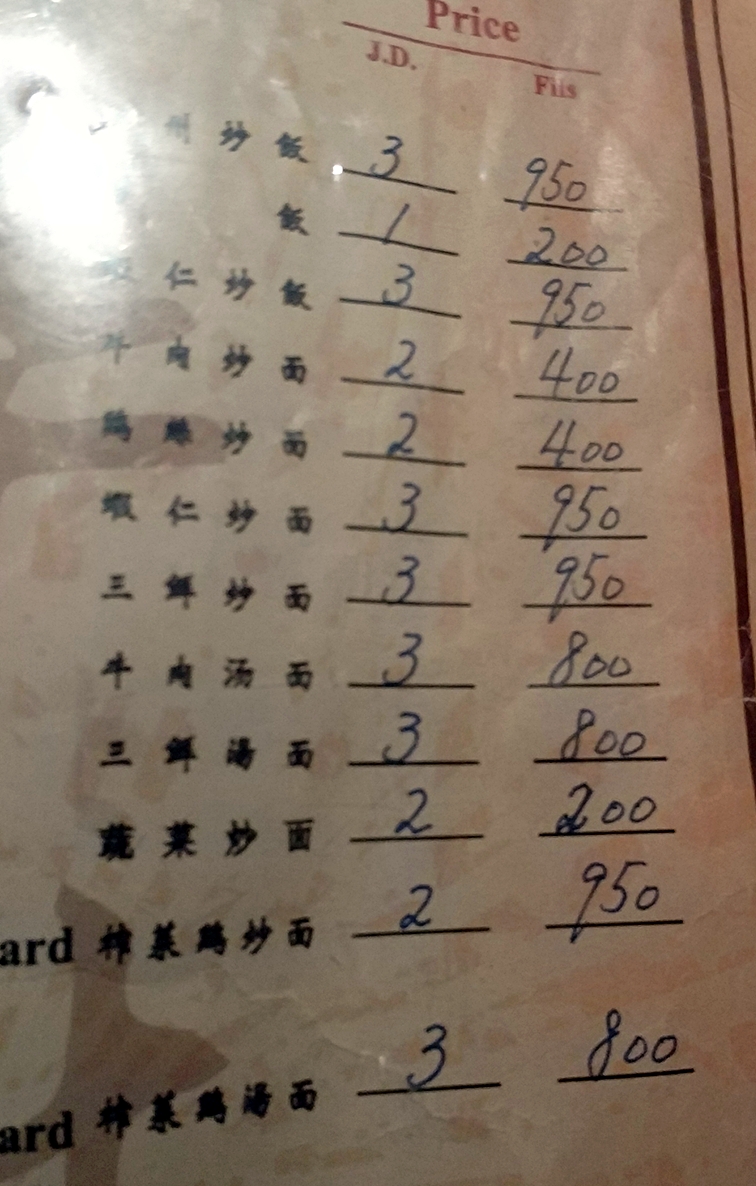 Price
J.D. Fils
州 炒 飯 3 950
飯 1 200
蝦 仁 炒 飯 3 950
牛 肉 炒 面 2 400
鷄 絲 炒 面 2 400
蝦 仁 炒 面 3 950
三 鮮 炒 面 3 950
牛 肉 汤 面 3 800
三 鮮 湯 面 3 800
蔬 菜 炒 面 2 200
ard 榨 菜 鷄 炒 面 2 950
ard 榨 菜 鷄 湯 面 3 800